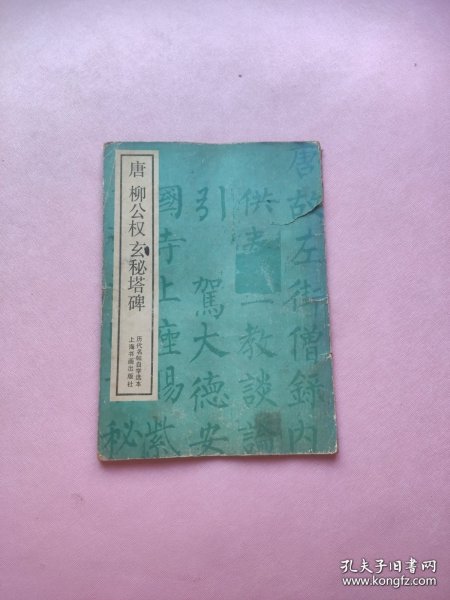 唐 柳公权 玄秘塔碑
历代名帖自学选本
上海书画出版社
唐故左街僧录内
供奉三教谈论
引駕大德安
國寺上座賜紫
秘
孔夫子旧书网
www.kongfz.com